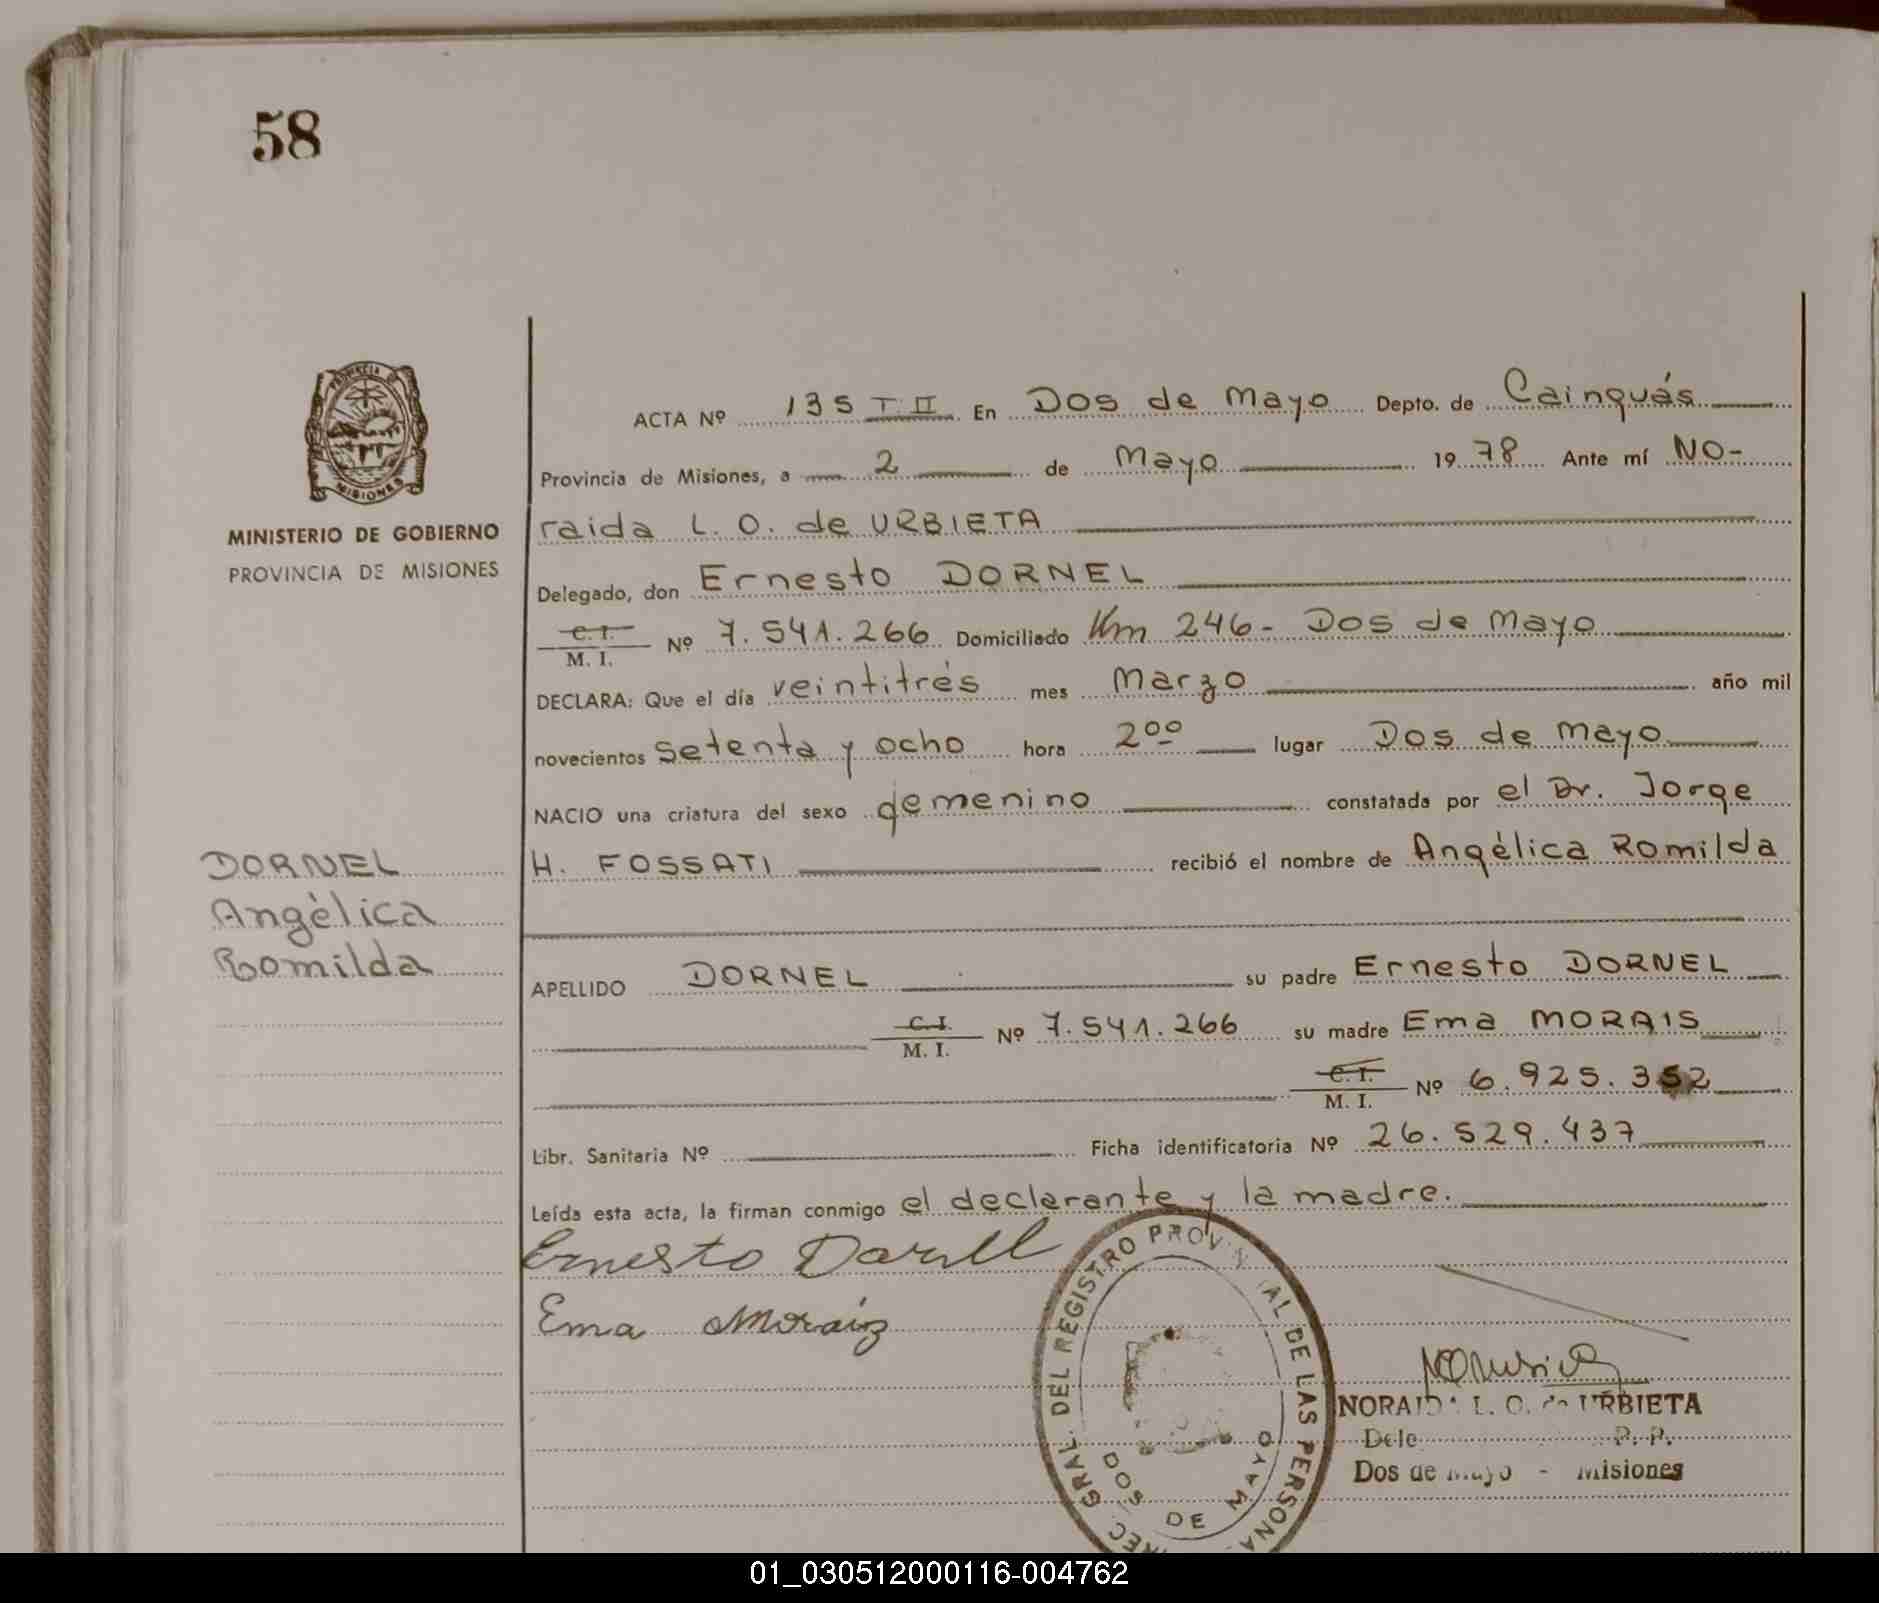 58
PROVINCIA DE
MISIONES
MINISTERIO DE GOBIERNO
PROVINCIA DE MISIONES
ACTA Nº 135 T. II En Dos de Mayo Depto. de Cainguás
Provincia de Misiones, a 2 de Mayo 1978 Ante mí NO-
raida L. O. de URBIETA
Delegado, don Ernesto DORNEL
C. I.
M. I. Nº 7.541.266 Domiciliado Km 246- Dos de Mayo
DECLARA: Que el día veintitrés mes Marzo año mil
novecientos setenta y ocho hora 2⁰⁰ lugar Dos de Mayo
NACIO una criatura del sexo femenino constatada por el Dr. Jorge
H. FOSSATI recibió el nombre de Angélica Romilda
DORNEL
Angélica
Romilda
APELLIDO DORNEL su padre Ernesto DORNEL
C. I.
M. I. Nº 7.541.266 su madre Ema MORAIS
C. I.
M. I. Nº 6.925.352
Libr. Sanitaria Nº Ficha identificatoria Nº 26.529.437
Leída esta acta, la firman conmigo el declarante y la madre.
Ernesto Dornel
Ema Moráiz
GRAL. DEL REGISTRO PROVIN AL DE LAS PERSONA
DOS DE MAYO
NORAIDA L. O. de URBIETA
Dele P. P.
Dos de Mayo - Misiones
01_030512000116-004762